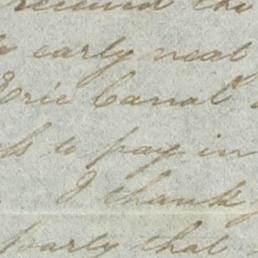 received the
early neat
Erie Canal
to pay in
I thank
party that